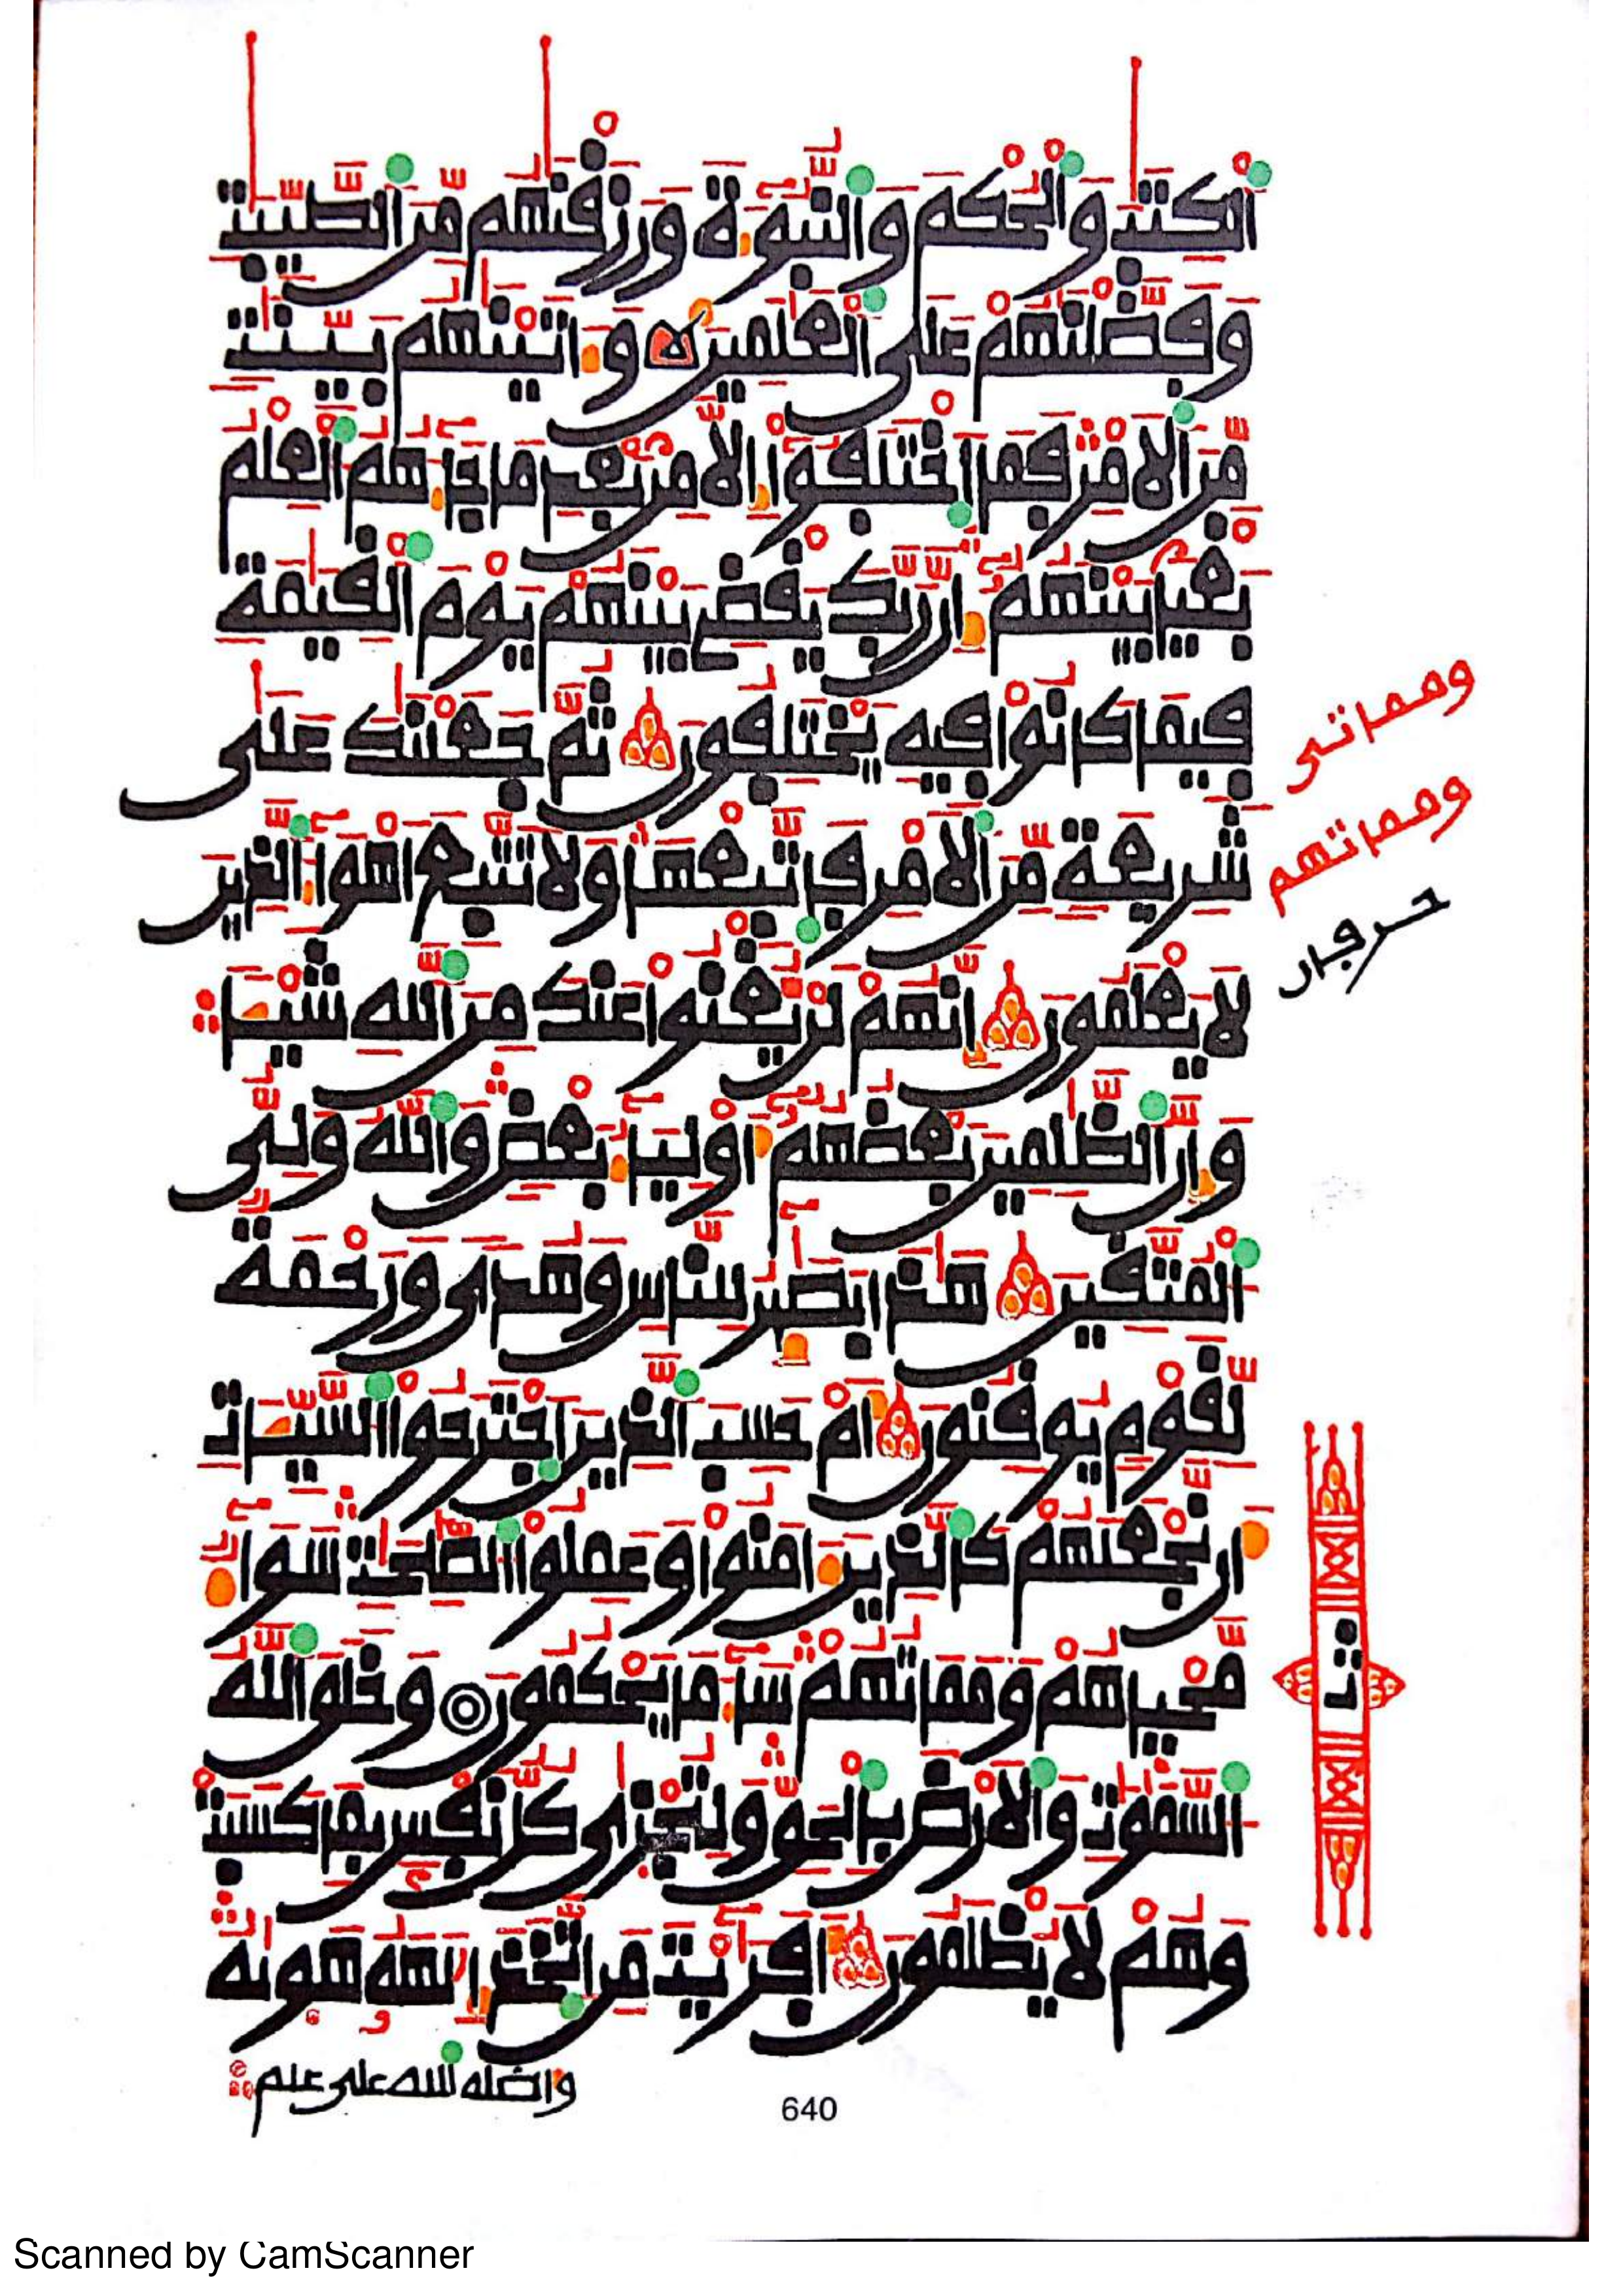 اَ۬لْكِتَٰبَ وَالْحُكْمَ وَالنُّبُوَّةَ وَرَزَقْنَٰهُم مِّنَ اَ۬لطَّيِّبَٰتِ
وَفَضَّلْنَٰهُمْ عَلَى اَ۬لْعَٰلَمِينَ وَءَاتَيْنَٰهُم بَيِّنَٰتٖ
مِّنَ اَ۬لَامْرِ فَمَا اَ۪خْتَلَفُوٓاْ إِلَّا مِنۢ بَعْدِ مَا جَآءَهُمُ اُ۬لْعِلْمُ
بَغْياَۢ بَيْنَهُمُۥٓ إِنَّ رَبَّكَ يَقْضِے بَيْنَهُمْ يَوْمَ اَ۬لْقِيَٰمَةِ
فِيمَا كَانُواْ فِيهِ يَخْتَلِفُونَ ثُمَّ جَعَلْنَٰكَ عَلَىٰ
شَرِيعَةٖ مِّنَ اَ۬لَامْرِ فَاتَّبِعْهَا وَلَا تَتَّبِعَ اَهْوَآءَ اَ۬لذِينَ
لَا يَعْلَمُونَ إِنَّهُمْ لَنْ يُّغْنُواْ عَنكَ مِنَ اَ۬للَّهِ شَيْـٔاٗ
وَإِنَّ اَ۬لظَّٰلِمِينَ بَعْضُهُمُۥٓ أَوْلِيَآءُ بَعْضٖ وَاللَّهُ وَلِيُّ
اُ۬لْمُتَّقِينَ هَٰذَا بَصَٰٓئِرُ لِلنَّاسِ وَهُديٗ وَرَحْمَةٞ
لِّقَوْمٖ يُوقِنُونَ أَمْ حَسِبَ اَ۬لذِينَ اَ۪جْتَرَحُواْ اُ۬لسَّيِّـَٔاتِ
أَن نَّجْعَلَهُمْ كَالذِينَ ءَامَنُواْ وَعَمِلُواْ اُ۬لصَّٰلِحَٰتِ سَوَآءٞ
مَّحْيَاهُمْ وَمَمَاتُهُمْ سَآءَ مَا يَحْكُمُونَ وَخَلَقَ اَ۬للَّهُ
اُ۬لسَّمَٰوَٰتِ وَالَارْضَ بِالْحَقِّ وَلِتُجْزَىٰ كُلُّ نَفْسِۢ بِمَا كَسَبَتْ
وَهُمْ لَا يُظْلَمُونَ أَفَرَٰٓيْتَ مَنِ اِ۪تَّخَذَ إِلَٰهَهُۥ هَوَىٰهُ
وأضله الله على علم
ومماتى
ومماتهم
حرفان
ثمن
640
Scanned by CamScanner